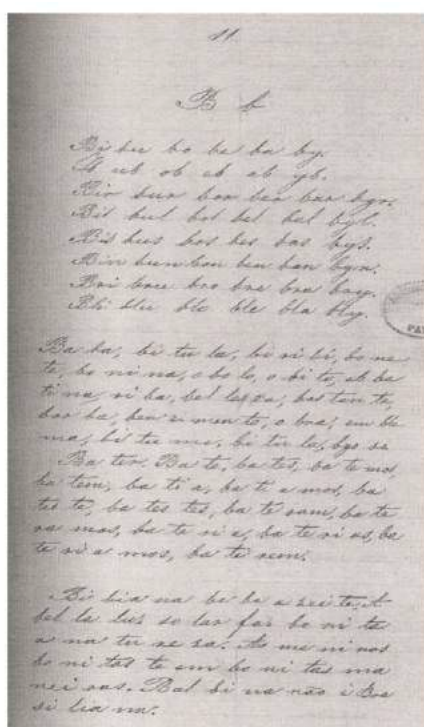 11
B b
Bi bu bo be ba by.
Ib ub ob eb ab yb.
Bir bur bor ber bar byr.
Bil bul bol bel bal byl.
Bis bus bos bes bas bys.
Bin bun bon ben ban byn.
Bri bru bro bre bra bry.
Bli blu blo ble bla bly.
Ba ba, bi tu la, bi ri bi, bo ne
te, bo ni na, o bo lo, o bi to, ab ba
ti na ri ba, bel le za, bas tan te,
bar ba, ben zi men to, o bra, em ble
ma, bi tu me, bi tu la,
Ba ter. Ba to, ba tes, ba te mos,
ba tem, ba ti a, ba ti a mos, ba
tes te, ba tes tes, ba te ram, ba te
re mos, ba te ri a, ba te ri as, ba
te ri a mos, ba te rem.
Bi bia na be be a zei te. A
bel la luz so lar faz bo ni ta
a na tu re za. As me ni nas
bo ni tas te em bo ni tas ma
nei ras. Bal bi na não é Bra
si lia na.
PA